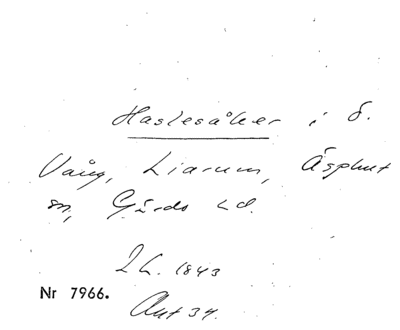 Haslesåker i ö.
Vång, Liarum, Äsphut
sn, Gärds hd.
2 L. 1843
Nr 7966.
Akt 34.